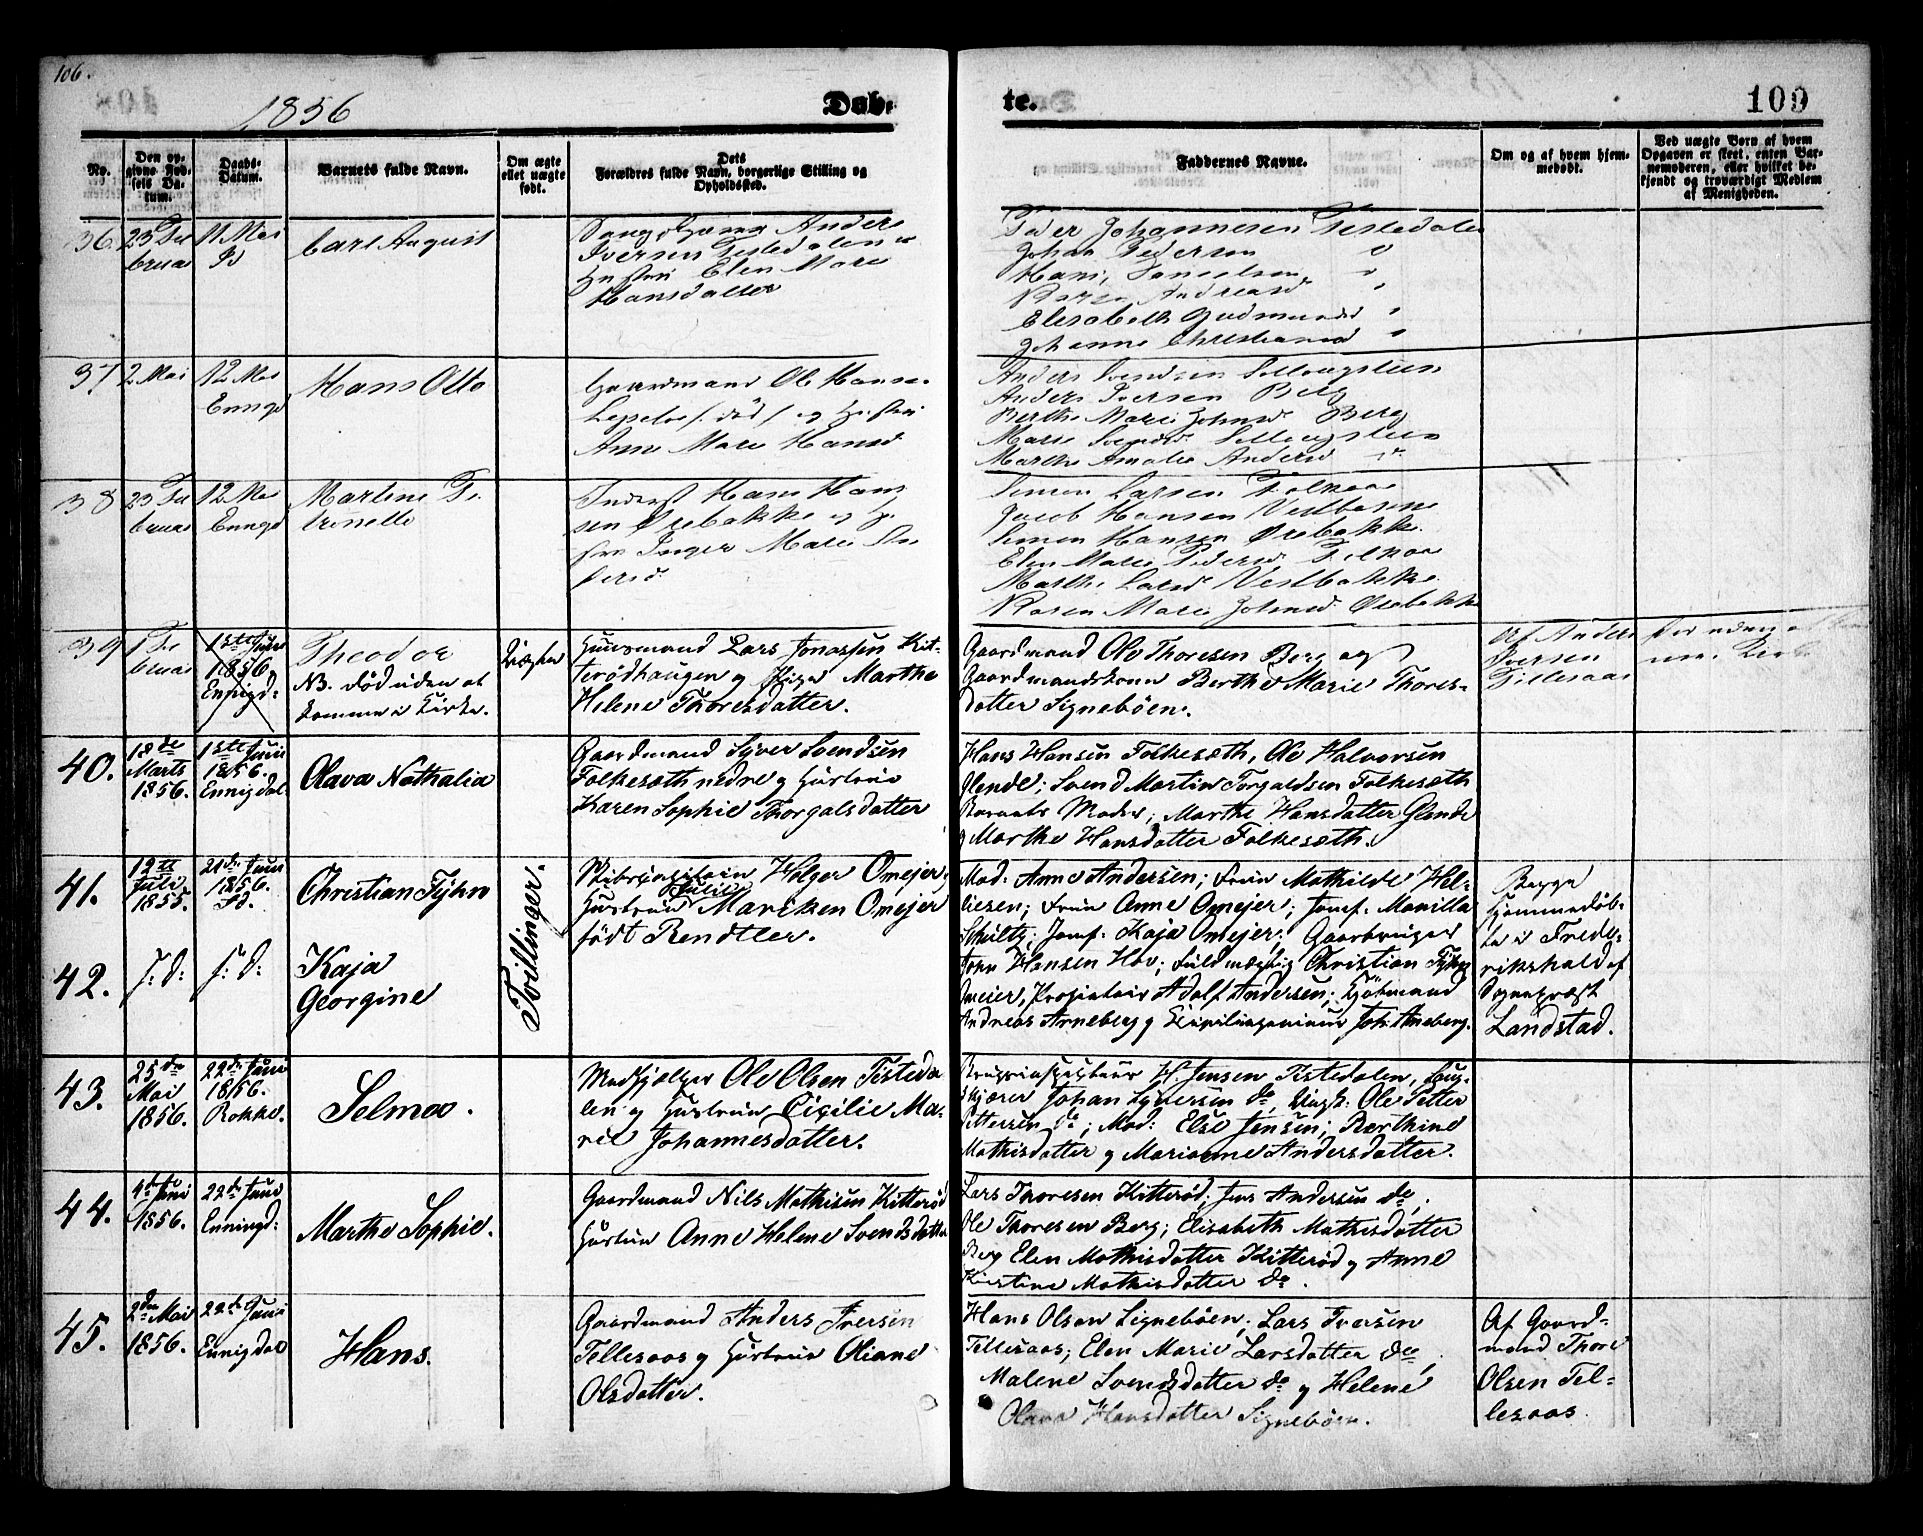 106.
1856
Døb-
te.
109
No.
Den op-
givne Fød-
sels Da-
tum.
Daabs-
Datum.
Barnets fulde Navn.
Om ægte
ellet uægte
født.
Dets
Forældres fulde Navn, borgerlige Stilling og
Opholdssted.
Faddernes Navne.
Om og af hvem hjem-
medøbt.
Ved uægte Born af hvem
Opgaven er skeet, enten Bar-
nemoderen, eller hvilket be-
kjendt og troværdigt Medlem
af Menigheden.
36.
23 Fe
bruar
11 Mai
Id
Carl August
Anders
Iversen Tistedalen
Hustru Elen Marie
Hansdatter
Peder Johannesen Tistedalen
Johan Pedersen
Hans Danielsen
Karen Andreasd
Elisabeth Gudmundsd
Johanne Christiansd
37
2 Mai
12 Mai
Enngd
Hans Otto
Gaardmand Ole Hans-
/ død / og Hustru
Anne Marie Hansd
Anders Svendsen
Anders Iversen Berg
Berthe Marie Johnsd Berg
Marie Svendsd
Marthe Amalie Andersd do
38
23 Fe
bruar
12 Mai
Enngd
Martine Pe
trinelle
Inderst Hans Han
sen Ørebakke og Hu
stru Inger Marie An
dersd.
Simen Larsen Folkaa
Jacob Hansen Vestbakke
Simen Hansen Ørebakke.
Elen Marie Pedersd Folkaa
Marthe Larsd Vestbakke.
Karen Marie Johnsd Ørebakke
39
1 Fe
bruar
1ste Juni
1856
Enningd:
Theodor
NB. død uden at
komme i Kirke.
Uægte
Huusmand Lars Jonassen Kit-
terødhaugen og Pige Marthe
Helene Thoresdatter.
Gaardmand Ole Thoresen Berg og
Gaardmandskone Berthe Marie Thores-
datter Signebøen.
Af Anders
Iversen
Tillesaas
Død uden at
40.
18de
Marts
1856.
1ste Juni
1856.
Ennigdal
Olava Nathalia
Gaardmand Syver Svendsen
Folkesæth nedre og Hustrue
Karen Sophie Thorgalsdatter
Hans Hansen Folkesæth, Ole Halvorsen
Glende; Svend Martin Torgaldsen Folkesæth
Barnets Moder; Marthe Hansdatter Glende
og Marthe Hansdatter Folkesæth.
41.
12te
Juli
1855.
21de Juni
1856.
Id.
Christian Tyhn
Tvillinger.
Skibscapitain Holger Omejer,
Hustrue Julie Mariken Omejer
født Rendtler.
Mad: Anne Andersen; Frue Mathilde Hel-
liesen; Frue Anne Omejer; Jomf: Manilla
Schultz; Jomf: Kaja Omejer; Gaardbruger
John Hansen Hov; Fuldmægtig Christian Tyhn
Omeier, Proprietair Adolf Andersen; Kjøbmand
Andreas Arneberg og Joh: Arneberg.
Begge
hjemmedøb-
te i Frede-
rikshald af
Sognepræst
Landstad.
42.
s: d:
s: d:
Kaja
Georgine
43.
25de
Mai
1856.
22de Juni
1856.
Rokke.
Selma.
Medhjælper Ole Olsen Tisteda-
len og Hustrue Cicilie Ma-
rie Johannesdatter.
H. Jensen Tistedalen, Sag-
skjærer Johan Syversen do, Ungk: Ole Petter
Pettersen do; Mad: Else Jensen; Berthine
Mathisdatter og Marianne Andersdatter.
44.
4de Juni
1856.
22de Juni
Enningd:
Marthe Sophie.
Gaardmand Nils Mathisen Kitterød
Hustrue Anne Helene Svendsdatter
Lars Thoresen Kitterød; Jens Andersen do,
Ole Thoresen Berg; Elisabeth Mathisdatter
Berg Elen Mathisdatter Kitterød og Anne
Kirstine Mathisdatter do.
45.
2den Mai
1856.
22de Juni
Ennigdal
Hans.
Gaardmand Anders Iversen
Tellesaas og Hustrue Oliane
Olsdatter.
Hans Olsen Signebøen; Lars Iversen
Tellesaas; Elen Marie Larsdatter do,
Malene Svendsdatter do og Helene
Olava Hansdatter Signebøen.
Af Gaard-
mand Thore
Olsen Tel-
lesaas.